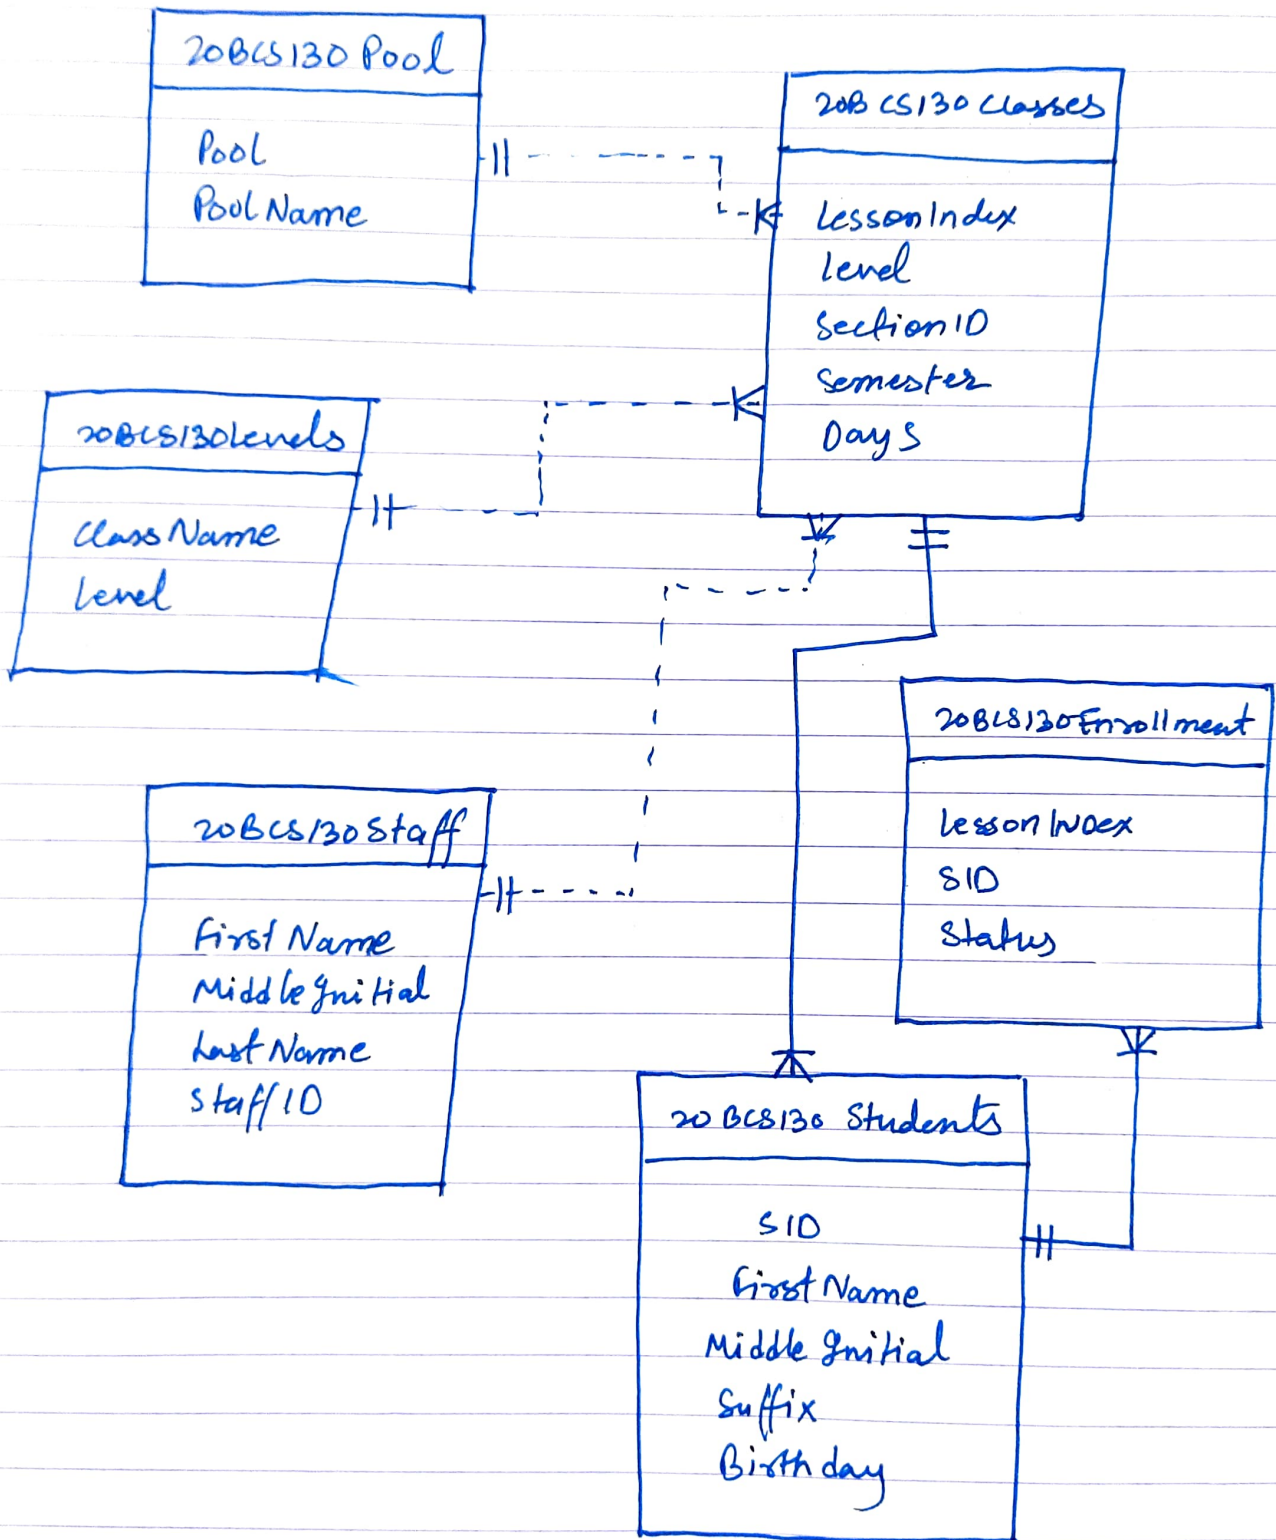 20BCS130 Pool
Pool
Pool Name
20BCS130 Classes
Lesson Index
Level
Section ID
Semester
Days
20BCS130Levels
Class Name
Level
20BCS130Enrollment
Lesson INDex
SID
Status
20BCS130 Staff
First Name
Middle Initial
Last Name
Staff ID
20BCS130 Students
SID
First Name
Middle Initial
Suffix
Birthday